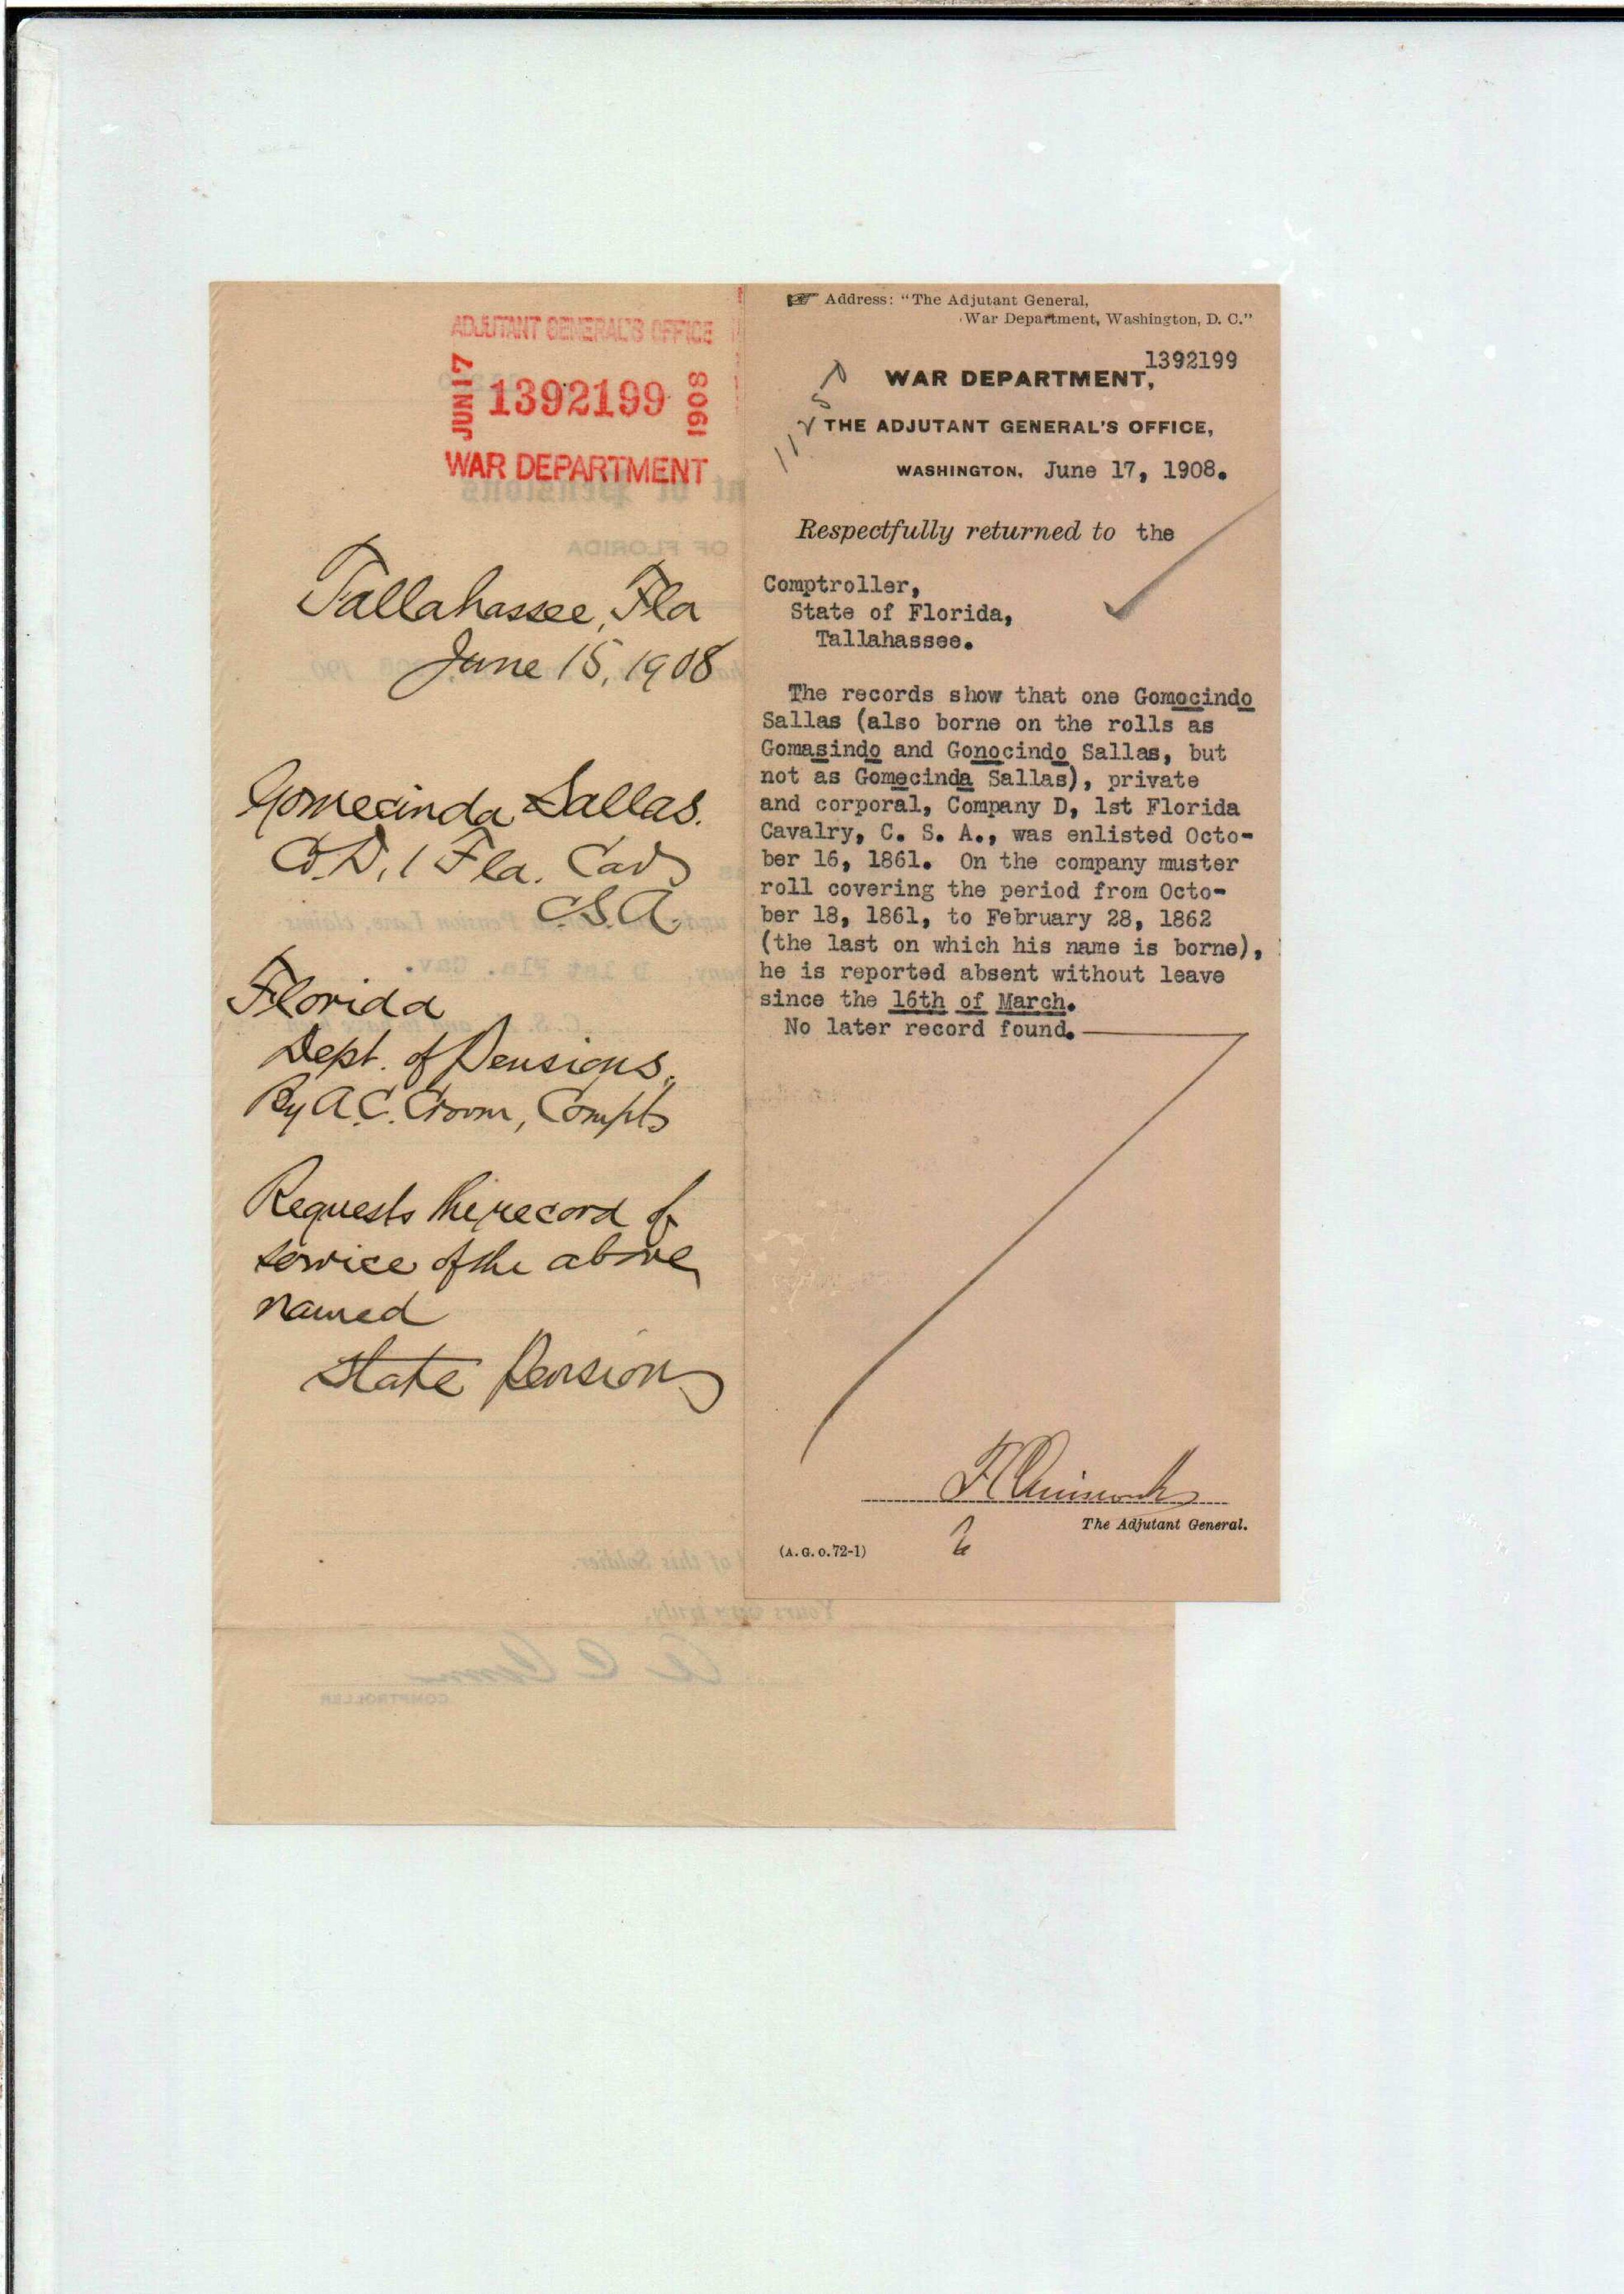 ADJUTANT GENERAL'S OFFICE
JUN 17 1392199 1908
WAR DEPARTMENT
Tallahassee, Fla
June 15, 1908
Gomecinda Sallas.
Co. D, 1 Fla. Cav
C.S.A.
Florida
Dept. of Pensions,
By A.C. Croom, Compt
Requests the record of
service of the above
named
State Pension
Address: "The Adjutant General,
War Department, Washington, D. C."
1392199
WAR DEPARTMENT,
THE ADJUTANT GENERAL'S OFFICE,
WASHINGTON, June 17, 1908.
Respectfully returned to the
Comptroller,
State of Florida,
Tallahassee.
The records show that one Gomocindo
Sallas (also borne on the rolls as
Gomasindo and Gonocindo Sallas, but
not as Gomecinda Sallas), private
and corporal, Company D, 1st Florida
Cavalry, C. S. A., was enlisted Octo-
ber 16, 1861. On the company muster
roll covering the period from Octo-
ber 18, 1861, to February 28, 1862
(the last on which his name is borne),
he is reported absent without leave
since the 16th of March.
No later record found.
F C Ainsworth
The Adjutant General.
(A. G. O. 72-1)
of this Soldier.
Yours very truly,
A C Croom
COMPTROLLER